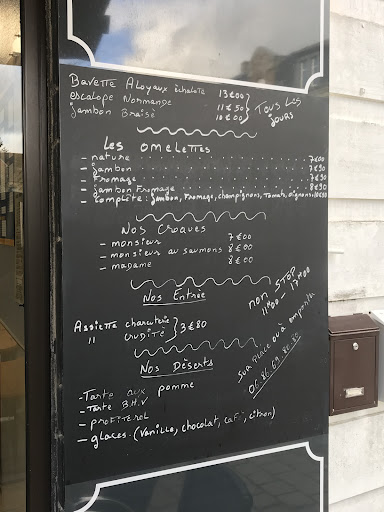 Bavette Aloyaux échalote 13€00
escalope Normande 11€50
jambon Braisé 10€00
Tous les
jours
Les omelettes
- nature . . . . . . . . . . 7€00
- jambon . . . . . . . . . . 7€90
- fromage . . . . . . . . . . 7€90
- jambon fromage . . . . . . . . . . 8€90
- complète: jambon, fromage, champignons, tomate, oignons
Nos Croques
- monsieur 7€00
- monsieur au saumons 8€00
- madame 8€00
Nos Entrée
non STOP
11H00 - 17H00
Assiette charcuterie
" crudité
3€80
Sur place ou à emporter
06.86.69.86.80
Nos Déserts
- Tarte aux pomme
- Tarte B.H.V
- profiterol
- glaces. (Vanille, chocolat, café, citron)